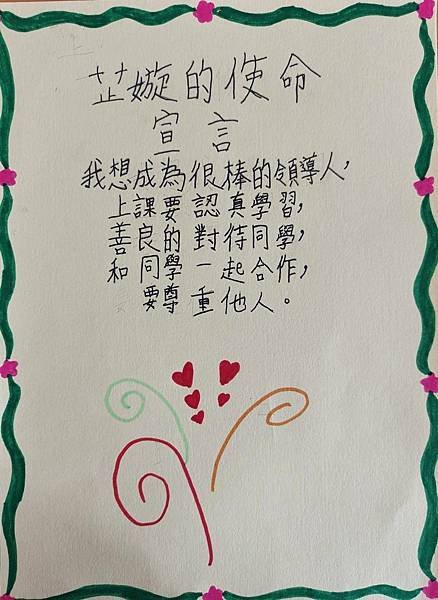 芷嫙的使命
宣言
我想成為很棒的領導人，
上課要認真學習，
善良的對待同學，
和同學一起合作，
要尊重他人。